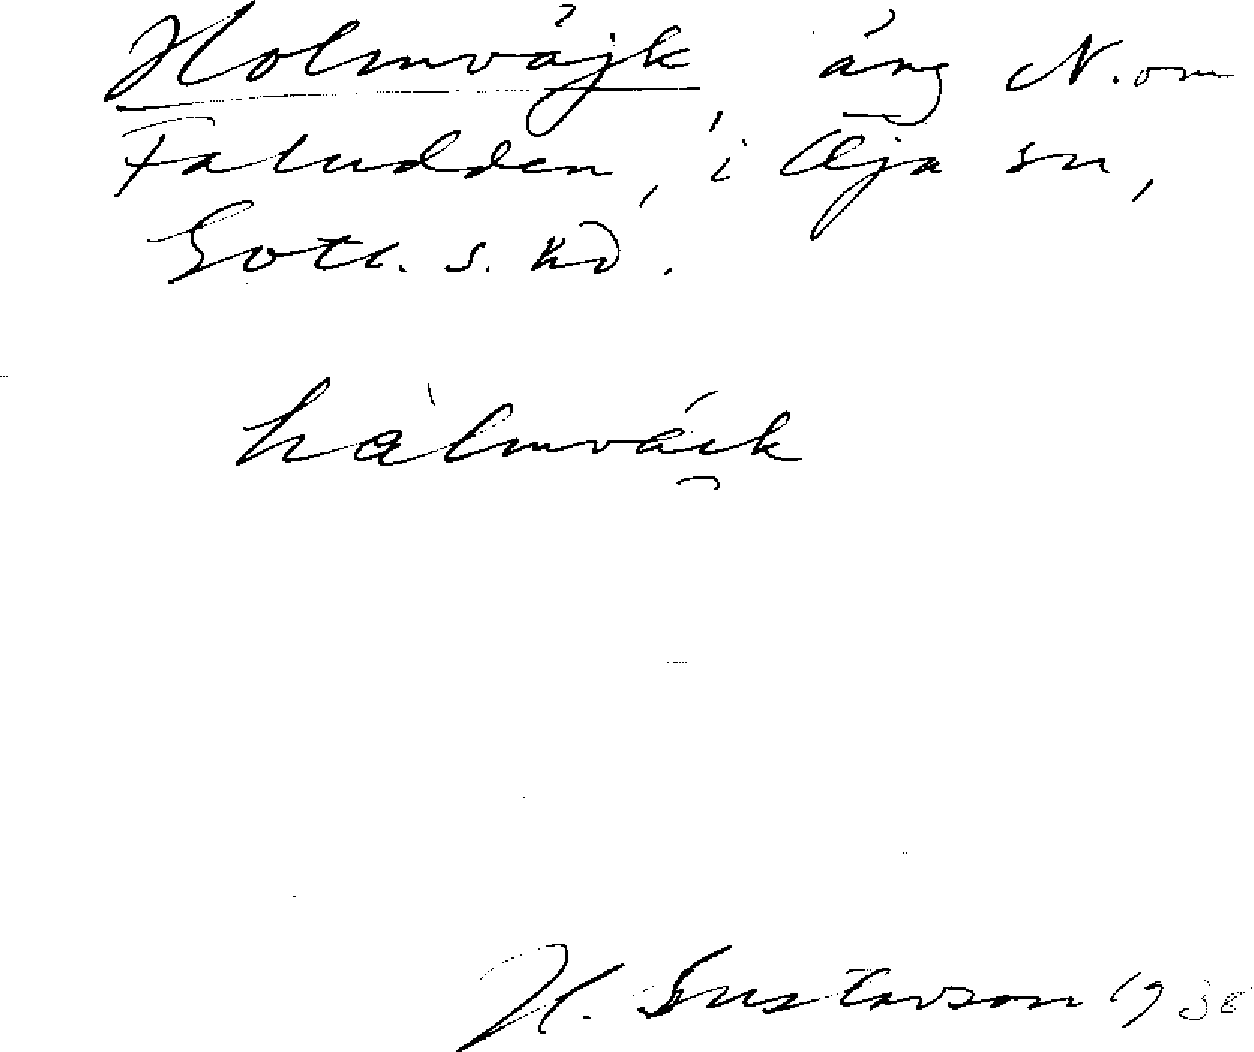 Holmväjk, äng N. om
Faludden, i Öja sn,
Gotl. s. hd.
hàlmváik
H. Gustavson 19